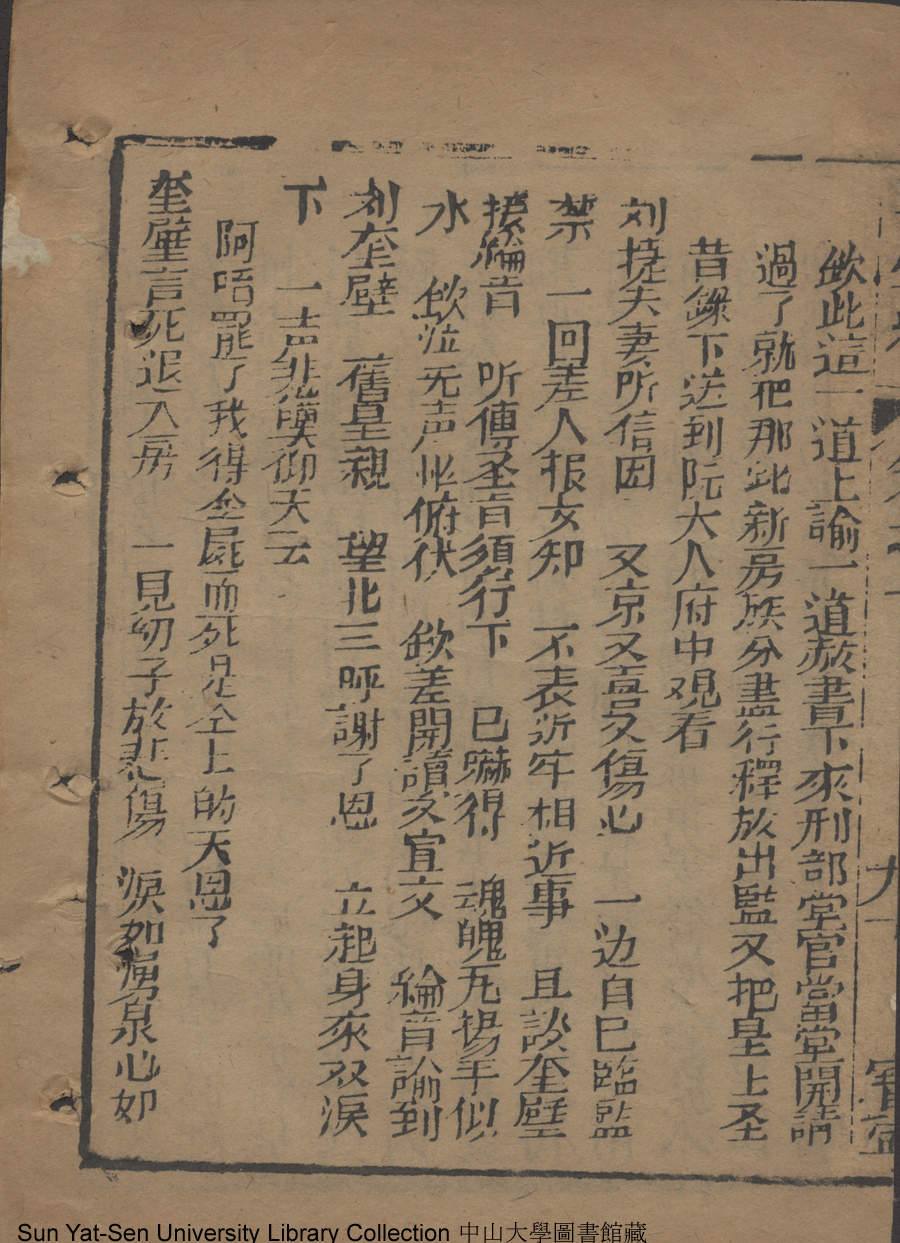 欽此這一道上諭一道赦書下來刑部堂官當堂開請
過了就把那此新房族分盡行釋放出監又把皇上圣
昔錄下送到阮大人府中观看
刘捷夫妻所信因 又京又喜又傷心 一边自已臨監
禁 一回差人报女知 不表近牢相近事 且談奎壁
接綸音 听傳圣旨須行下 已嚇得 魂魄无揚手似
水 飲泣无声 俯伏 欽差開讀又宣文 綸音諭到
刘奎壁 舊皇親 望北三呼謝了恩 立起身來双淚
下 一声悲嘆仰天云
阿唔罷了我得全屍而死是全上的天恩了
奎壁言死退入房 一見幼子放悲傷 淚如勇泉心如
Sun Yat-Sen University Library Collection 中山大學圖書館藏